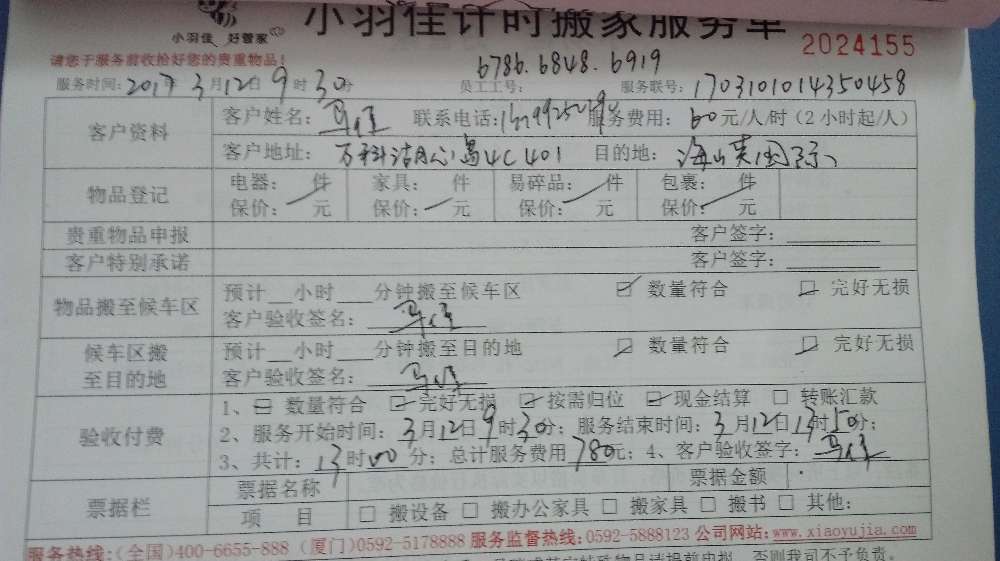 小羽佳计时搬家服务单
小羽佳 好管家
2024155
请您于服务前收拾好您的贵重物品!
6786.6848.6919
服务时间:2017年3月12日9时30分 员工工号: 服务联号:1703101014350458
客户资料
客户姓名: 联系电话: 服务费用:60元/人/时(2小时起/人)
客户地址:万科湖心岛4C401 目的地:海峡国际
物品登记
电器: 件 家具: 件 易碎品: 件 包裹: 件
保价: 元 保价: 元 保价: 元 保价: 元
贵重物品申报 客户签字:
客户特别承诺 客户签字:
物品搬至候车区
预计__小时___分钟搬至候车区 数量符合 完好无损
客户验收签名:
候车区搬至目的地
预计__小时___分钟搬至目的地 数量符合 完好无损
客户验收签名:
验收付费
1、 数量符合 完好无损 按需归位 现金结算 转账汇款
2、服务开始时间:3月12日9时30分;服务结束时间:3月12日13时50分;
3、共计:13时00分;总计服务费用780元;4、客户验收签字:
票据栏
票据名称 票据金额
项 目 搬设备 搬办公家具 搬家具 搬书 其他:
服务热线:(全国)400-6655-888 (厦门)0592-5178888 服务监督热线:0592-5888123 公司网站:www.xiaoyujia.com
否则我司不予负责。